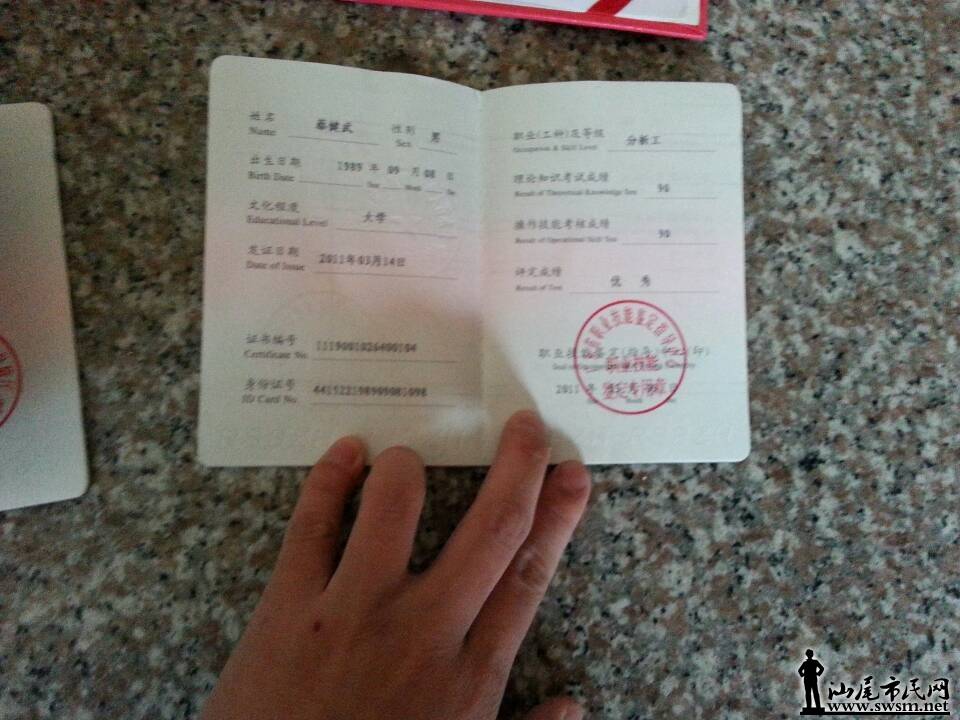 姓名 蔡健武 性别 男
Name Sex
出生日期 1989 年 09 月 08 日
Birth Date
文化程度 大学
Educational Level
发证日期 2011年03月14日
Date of Issue
证书编号 1119001026400104
Certificate No.
身份证号 441522198909081098
ID Card No.
职业(工种)及等级 分析工
Occupation & Skill Level
理论知识考试成绩
Result of Theoretical Knowledge Test
操作技能考核成绩 90
Result of Operational Skill Test
评定成绩 优 秀
Result of Test
职业技能鉴定(指导)中心(印)
2011 年
汕尾市民网
www.swsm.net